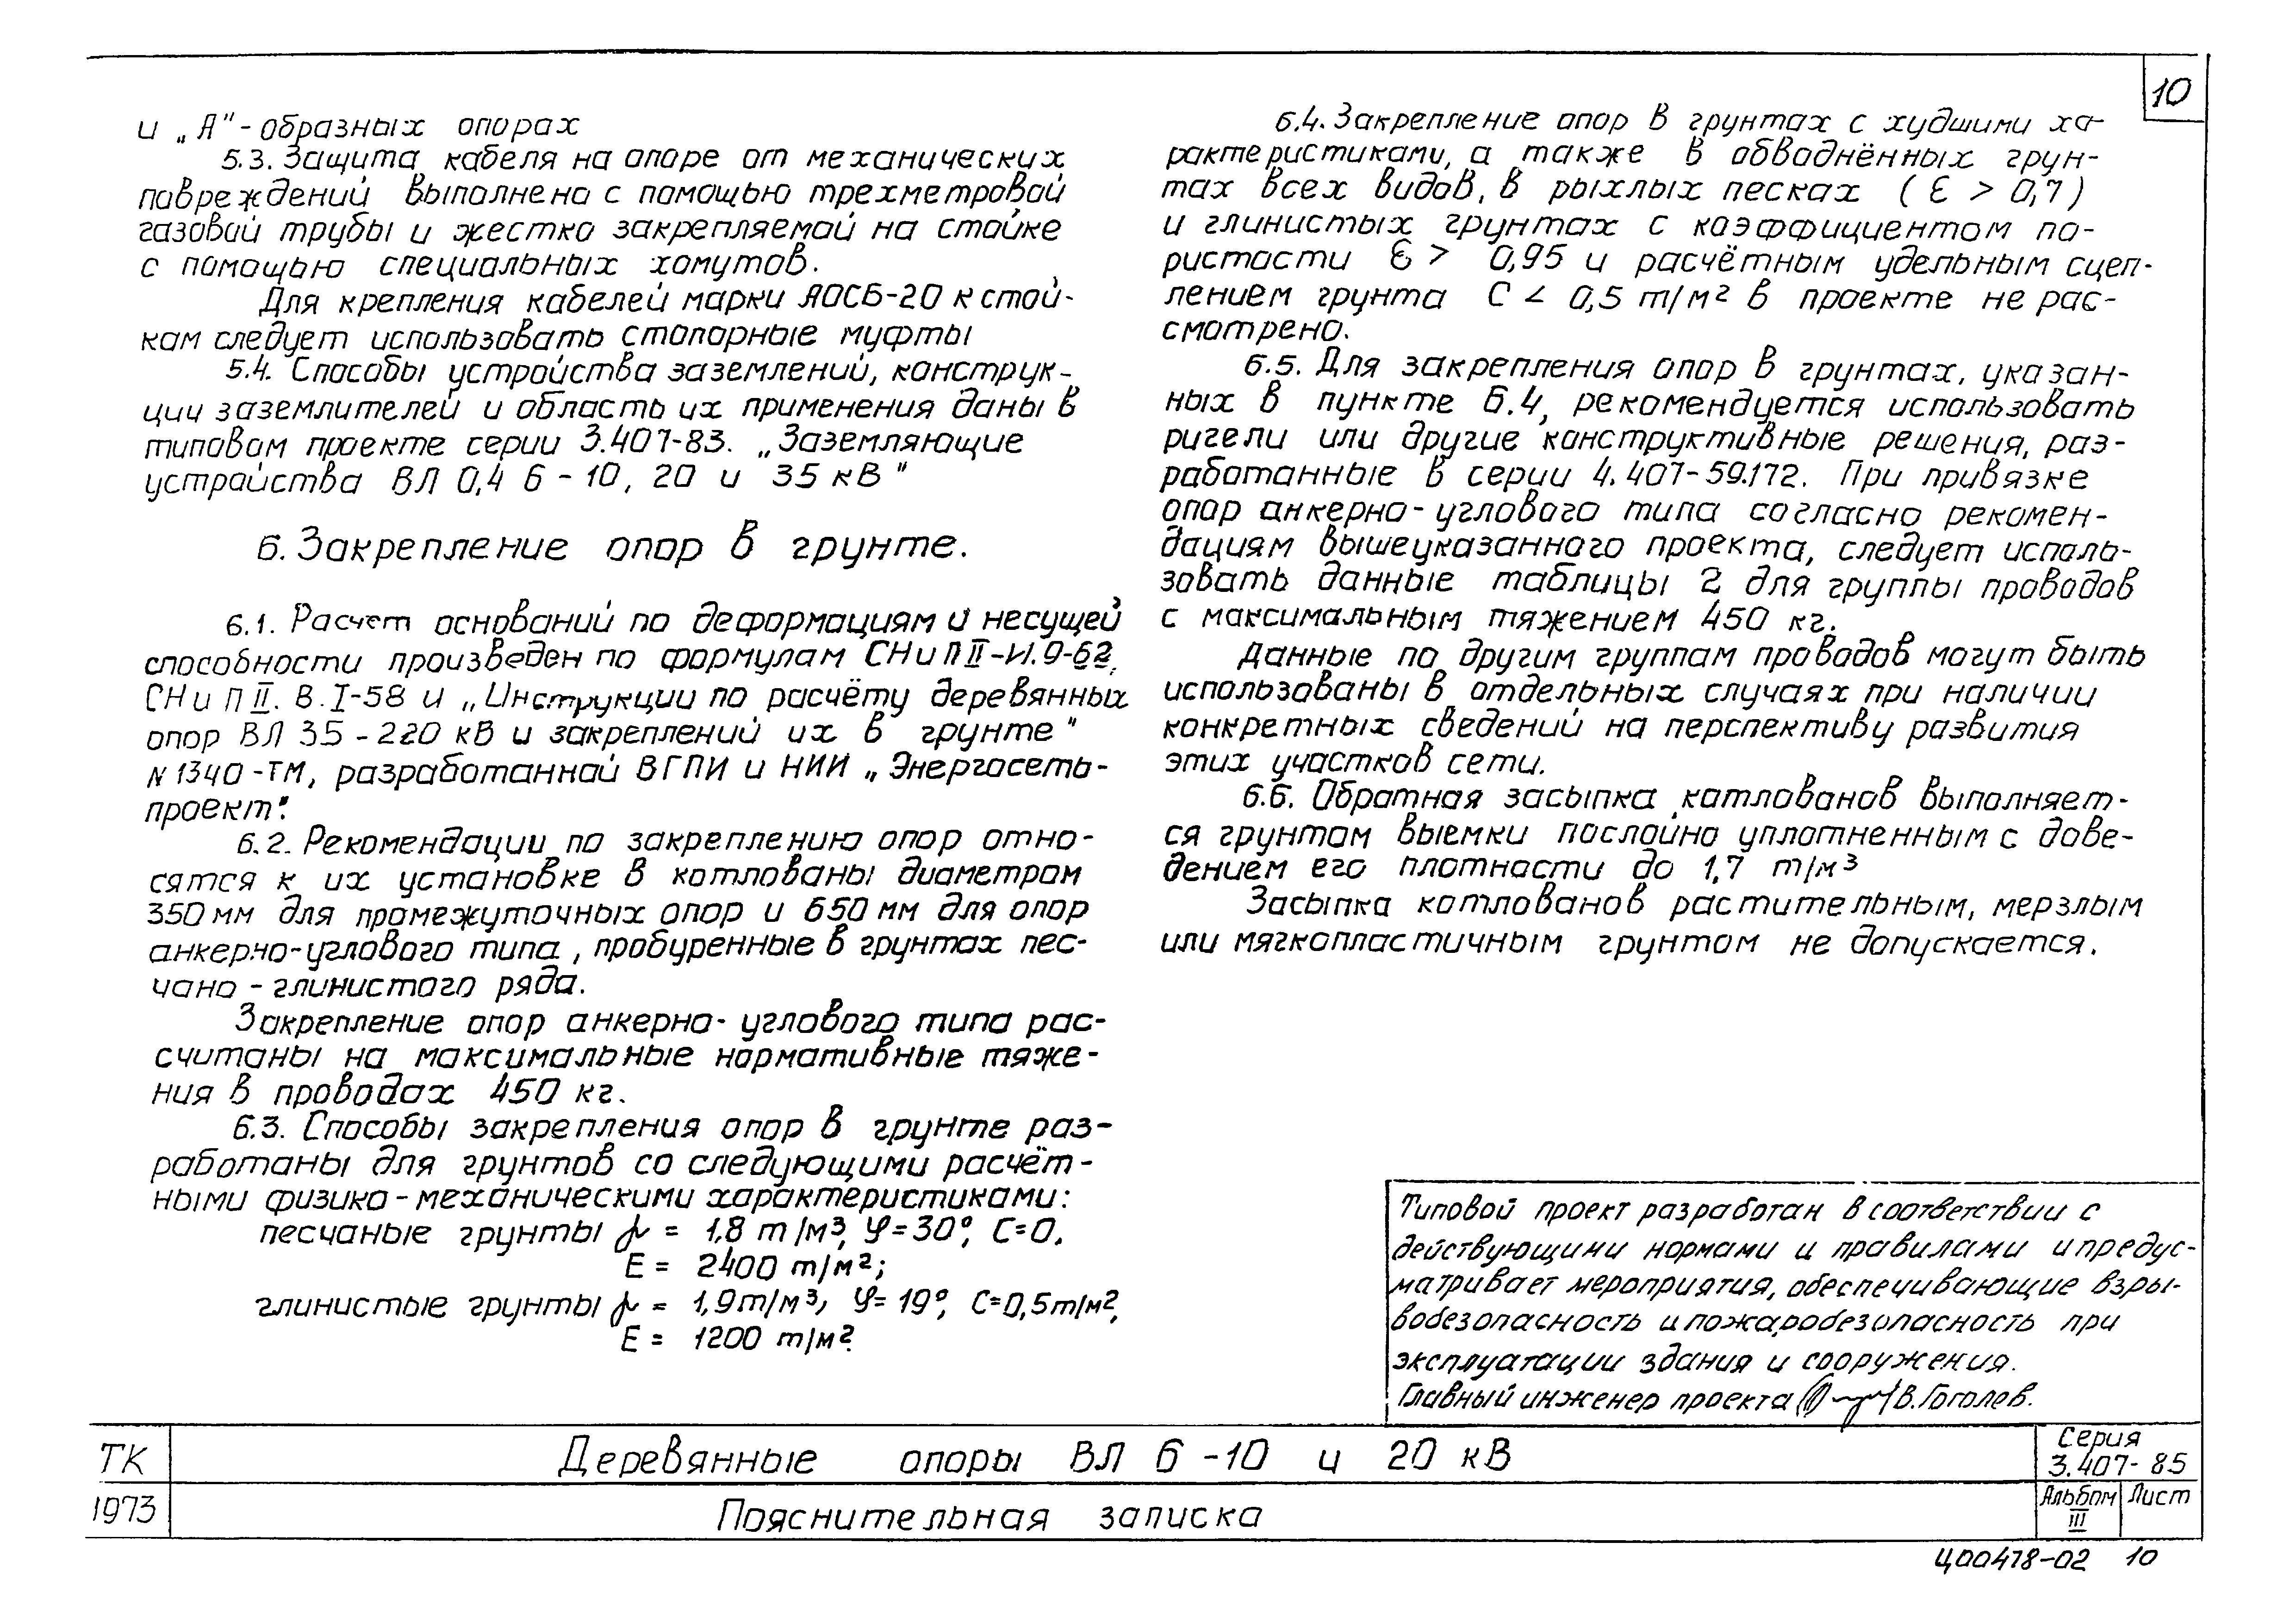 10
и „А"-образных опорах
5.3. Защита кабеля на опоре от механических
повреждений выполнена с помощью трехметровой
газовой трубы и жестко закрепляемой на стойке
с помощью специальных хомутов.
Для крепления кабелей марки АОСБ-20 к стой-
кам следует использовать стопорные муфты
5.4. Способы устройства заземлений, конструк-
ции заземлителей и область их применения даны в
типовом проекте серии 3.407-83. „Заземляющие
устройства ВЛ 0,4 6 - 10, 20 и 35 кВ"
6. Закрепление опор в грунте.
6.1. Расчет оснований по деформациям и несущей
способности произведен по формулам СНиП II-И.9-62,
СНиП II. В.I-58 и „Инструкции по расчёту деревянных
опор ВЛ 35 - 220 кВ и закреплений их в грунте"
N 1340-ТМ, разработанной ВГПИ и НИИ „Энергосеть-
проект".
6.2. Рекомендации по закреплению опор отно-
сятся к их установке в котлованы диаметром
350 мм для промежуточных опор и 650 мм для опор
анкерно-углового типа, пробуренные в грунтах пес-
чано - глинистого ряда.
Закрепление опор анкерно-углового типа рас-
считаны на максимальные нормативные тяже-
ния в проводах 450 кг.
6.3. Способы закрепления опор в грунте раз-
работаны для грунтов со следующими расчёт-
ными физико-механическими характеристиками:
песчаные грунты γ = 1,8 т/м³, φ=30°, С=0.
Е = 2400 т/м²;
глинистые грунты γ = 1,9т/м³, φ= 19°, С=0,5т/м²,
Е = 1200 т/м².
6.4. Закрепление опор в грунтах с худшими ха-
рактеристиками, а также в обводнённых грун-
тах всех видов, в рыхлых песках ( Ɛ > 0,7)
и глинистых грунтах с коэффициентом по-
ристости Ɛ > 0,95 и расчётным удельным сцеп-
лением грунта С < 0,5 т/м² в проекте не рас-
смотрено.
6.5. Для закрепления опор в грунтах, указан-
ных в пункте 6.4, рекомендуется использовать
ригели или другие конструктивные решения, раз-
работанные в серии 4.407-59.172. При привязке
опор анкерно-углового типа согласно рекомен-
дациям вышеуказанного проекта, следует исполь-
зовать данные таблицы 2 для группы проводов
с максимальным тяжением 450 кг.
Данные по другим группам проводов могут быть
использованы в отдельных случаях при наличии
конкретных сведений на перспективу развития
этих участков сети.
6.6. Обратная засыпка котлованов выполняет-
ся грунтом выемки послойно уплотненным с дове-
дением его плотности до 1,7 т/м³
Засыпка котлованов растительным, мерзлым
или мягкопластичным грунтом не допускается.
Типовой проект разработан в соответствии с
действующими нормами и правилами и предус-
матривает мероприятия, обеспечивающие взры-
вобезопасность и пожаробезопасность при
эксплуатации здания и сооружения.
Главный инженер проекта В. Гоголев.
ТК
1973
Деревянные опоры ВЛ 6 -10 и 20 кВ
Пояснительная записка
Серия
3.407- 85
Альбом Лист
III
Ц00478-02 10